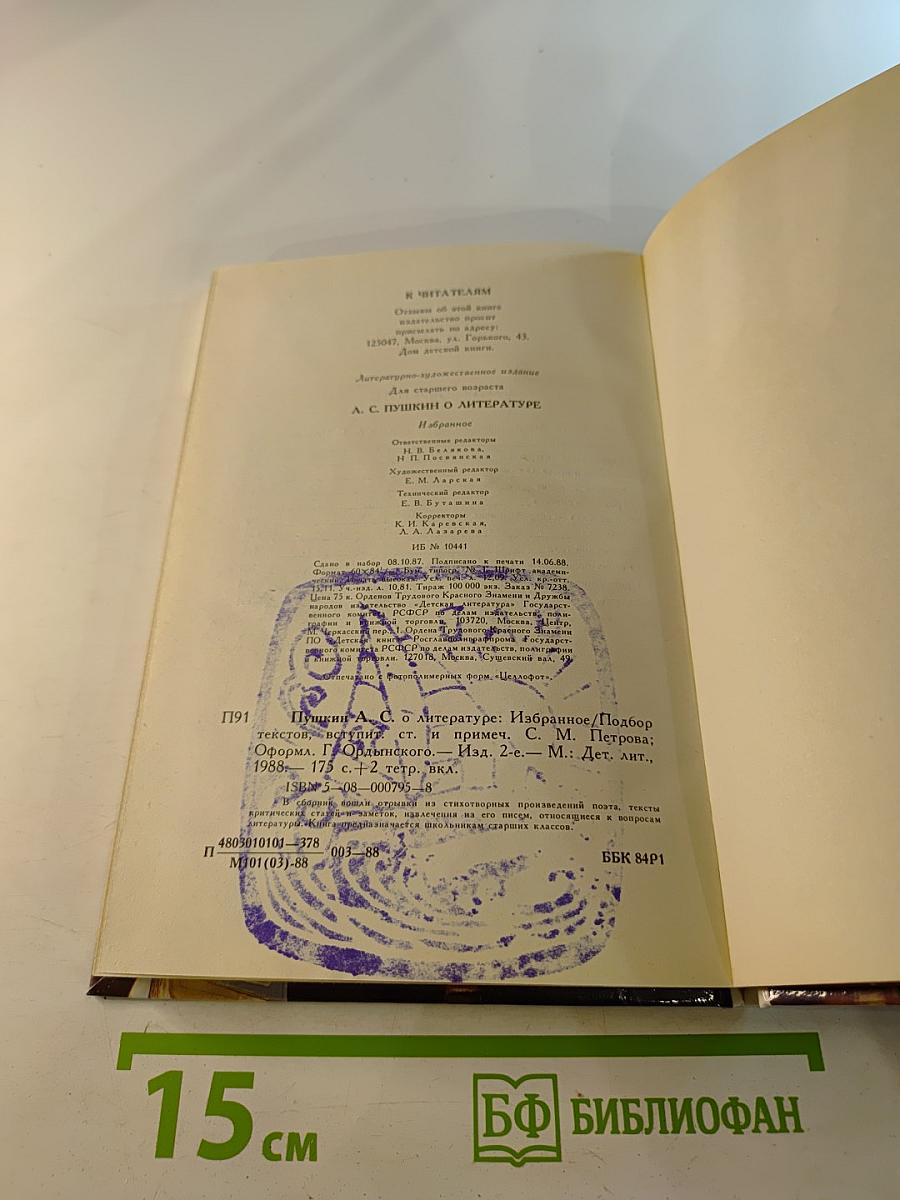 К ЧИТАТЕЛЯМ
Отзывы об этой книге
издательство просит
присылать по адресу:
123047, Москва, ул. Горького, 43.
Дом детской книги.
Литературно-художественное издание
Для старшего возраста
А. С. ПУШКИН О ЛИТЕРАТУРЕ
Избранное
Ответственные редакторы
Н. В. Белякова,
Н П. Посвянская
Художественный редактор
Е. М. Ларская
Технический редактор
Е. В. Буташина
Корректоры
К. И. Каревская,
Л. А. Лазарева
ИБ № 10441
Сдано в набор 08.10.87. Подписано к печати 14.06.88.
Формат 60×84 Бум. типогр. № 1. Шрифт академи-
ческий. Печать высокая. Усл. печ. л. 12,09. Усл. кр.-отт.
15,11. Уч.-изд. л. 10,81. Тираж 100 000 экз. Заказ № 7238.
Цена 75 к. Орденов Трудового Красного Знамени и Дружбы
народов издательство «Детская литература» Государст-
венного комитета РСФСР по делам издательств, поли-
графии и книжной торговли. 103720, Москва, Центр,
М. Черкасский пер., 1. Ордена Трудового Красного Знамени
ПО «Детская книга» Росглавполиграфпрома Государст-
венного комитета РСФСР по делам издательств, полиграфии
и книжной торговли. 127018, Москва, Сущевский вал, 49.
Отпечатано с фотополимерных форм «Целлофот».
П91 Пушкин А. С. о литературе: Избранное/Подбор
текстов, вступит. ст. и примеч. С. М. Петрова;
Оформл. Г. Ордынского.— Изд. 2-е.— М.: Дет. лит.,
1988.— 175 с.+2 тетр. вкл.
ISBN 5—08—000795—8
В сборник вошли отрывки из стихотворных произведений поэта, тексты
критических статей и заметок, извлечения из его писем, относящиеся к вопросам
литературы. Книга предназначается школьникам старших классов.
П 4803010101—378 003—88
М101(03)-88
ББК 84Р1
15 см
БФ БИБЛИОФАН